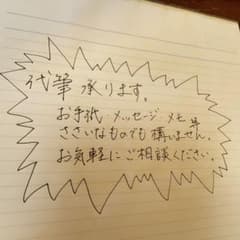 代筆 承ります。
お手紙 メッセージ メモ 等
ささいなものでも構いません。
お気軽にご相談ください。